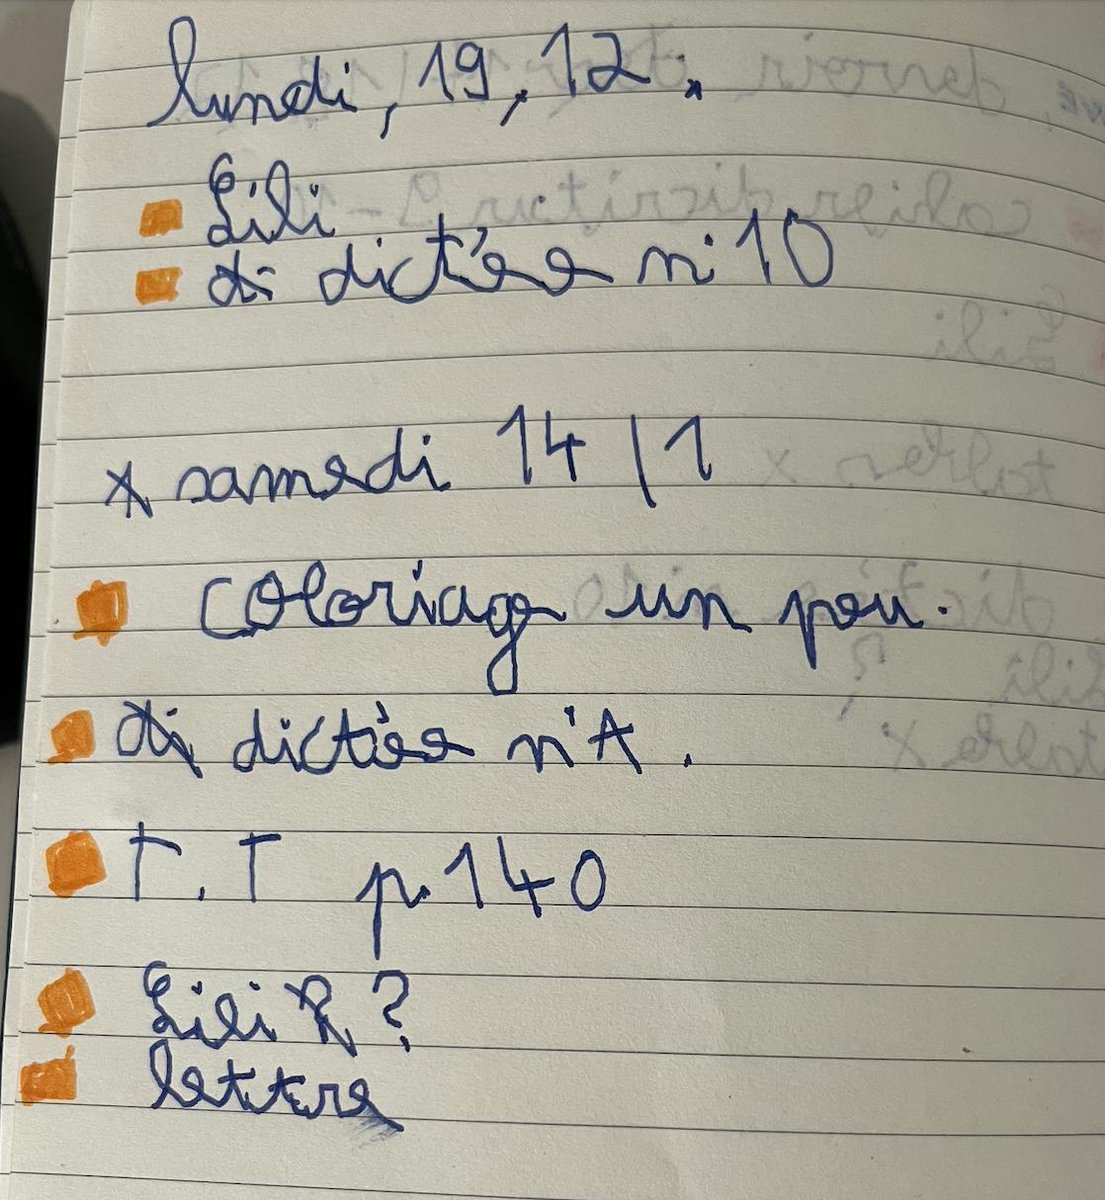 lundi, 19, 12.
Lili
di dictée n° 10
samedi 14 / 1
coloriage un peu.
di dictée n°
T.T p.140
Lili R ?
lettre